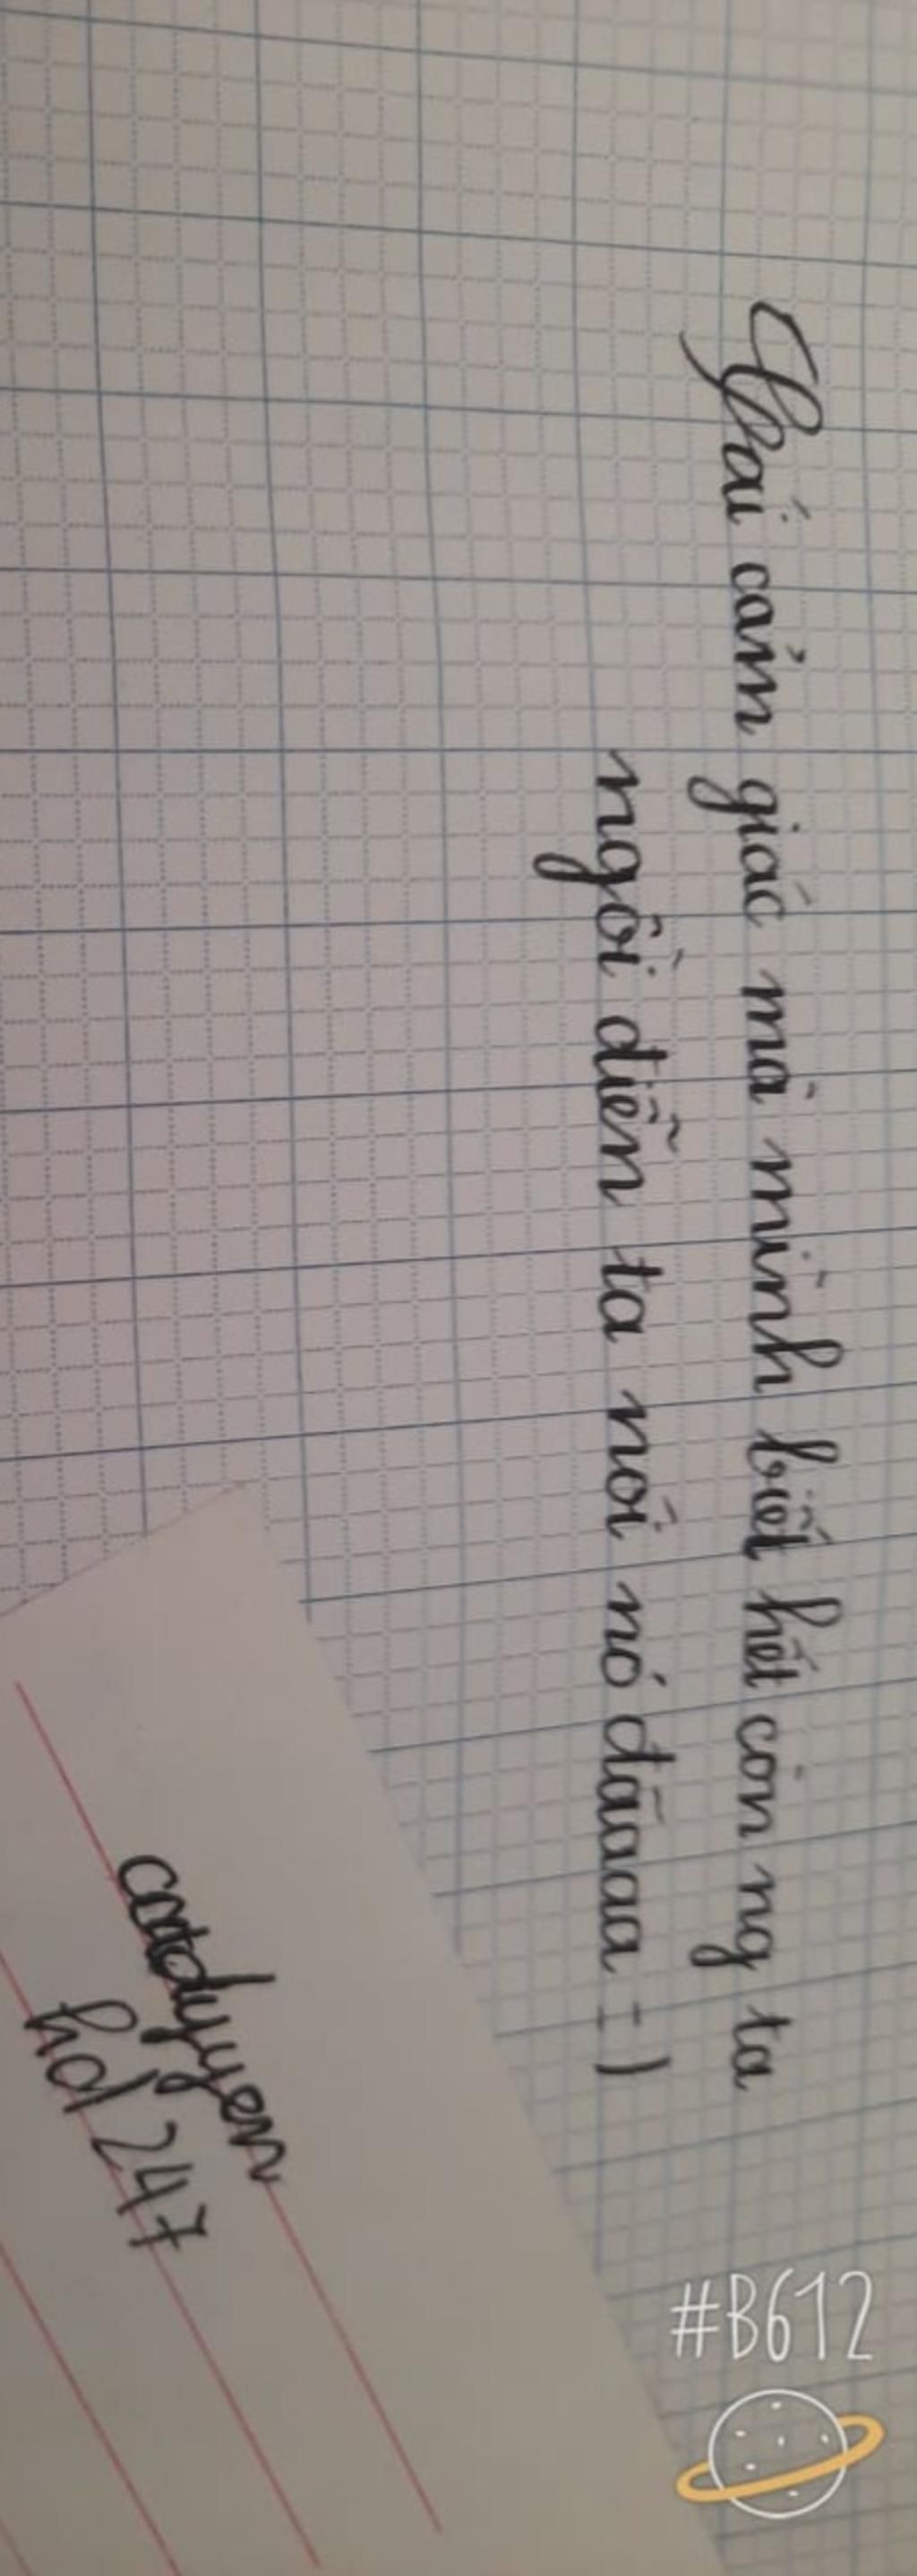 Khái cảm giác mà mình biết hết còn ng ta
ngồi diễn ta nói nó đãaaa :)
catdyyen
hd 247
#B612